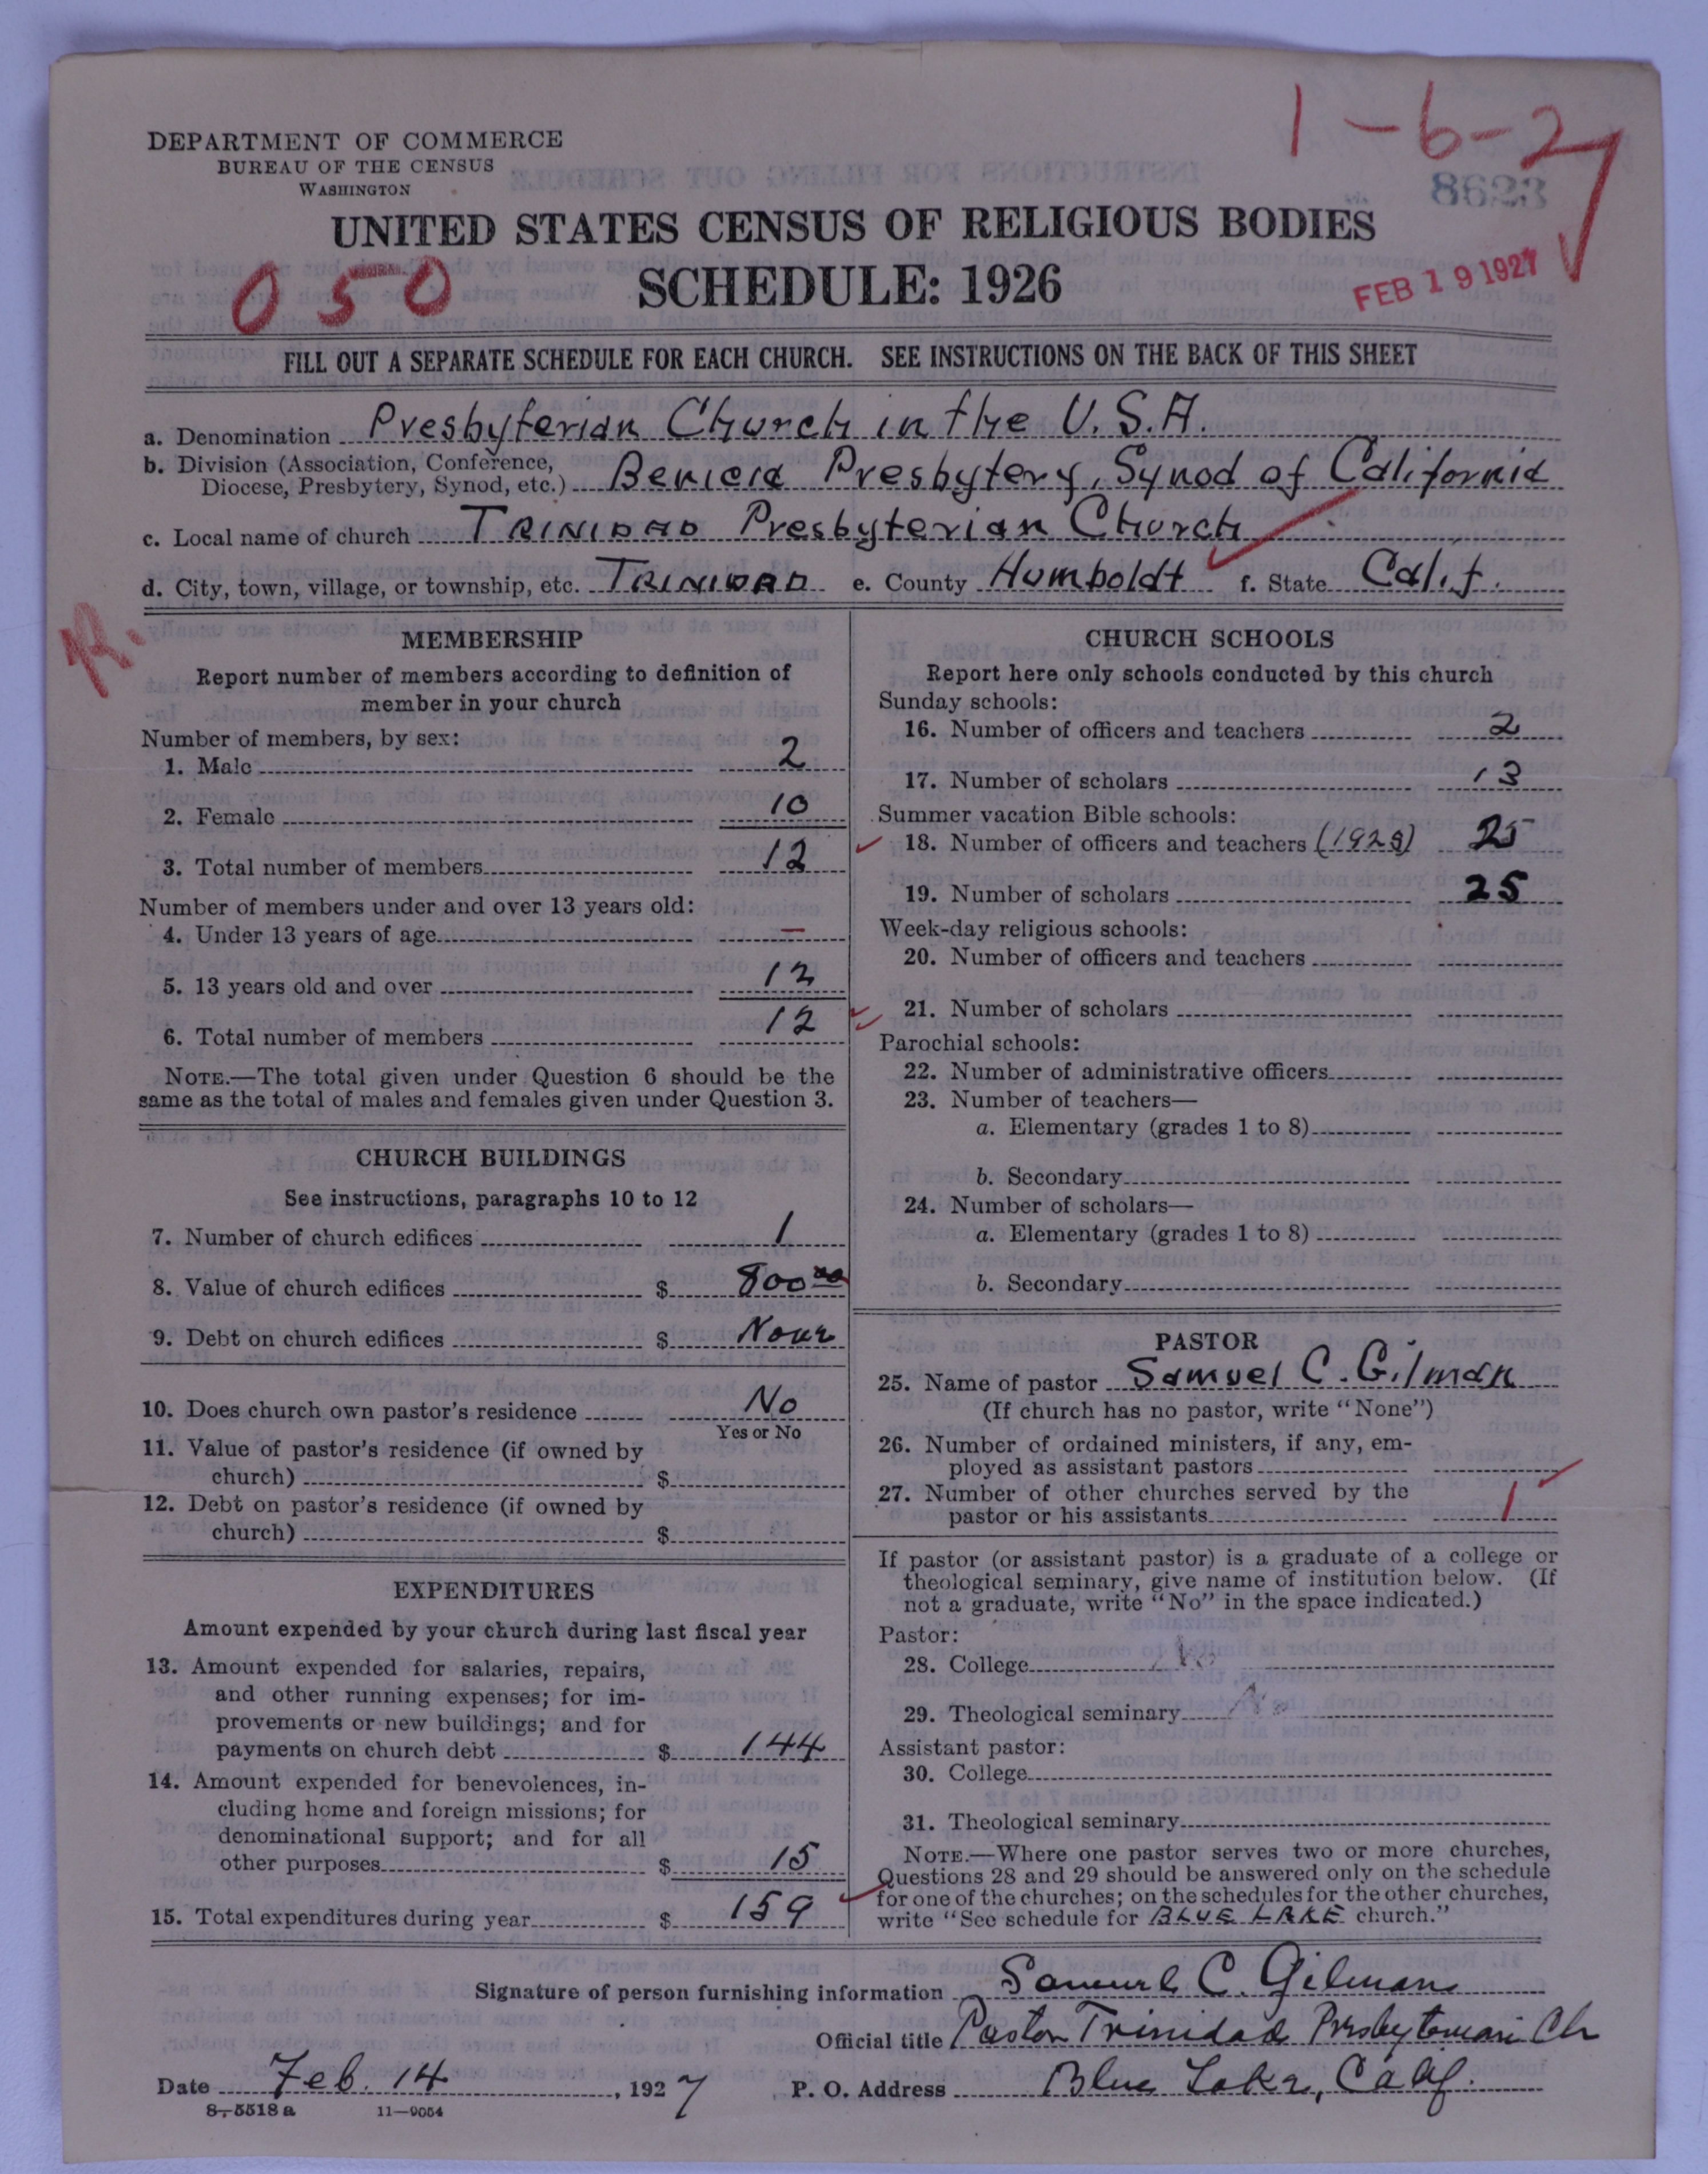 1-6-27
DEPARTMENT OF COMMERCE
BUREAU OF THE CENSUS
WASHINGTON
8623
UNITED STATES CENSUS OF RELIGIOUS BODIES
SCHEDULE: 1926
050
FEB 19 1927
FILL OUT A SEPARATE SCHEDULE FOR EACH CHURCH. SEE INSTRUCTIONS ON THE BACK OF THIS SHEET
a. Denomination Presbyterian Church in the U.S.A.
b. Division (Association, Conference,
Diocese, Presbytery, Synod, etc.) Benicia Presbytery, Synod of California
c. Local name of church TRINIDAD Presbyterian Church
d. City, town, village, or township, etc. TRINIDAD e. County Humboldt f. State Calif.
R.
MEMBERSHIP
Report number of members according to definition of
member in your church
Number of members, by sex:
1. Male 2
2. Female 10
3. Total number of members 12
Number of members under and over 13 years old:
4. Under 13 years of age —
5. 13 years old and over 12
6. Total number of members 12
NOTE.—The total given under Question 6 should be the
same as the total of males and females given under Question 3.
CHURCH BUILDINGS
See instructions, paragraphs 10 to 12
7. Number of church edifices 1
8. Value of church edifices $ 800 00
9. Debt on church edifices $ None
10. Does church own pastor's residence No
Yes or No
11. Value of pastor's residence (if owned by
church) $
12. Debt on pastor's residence (if owned by
church) $
EXPENDITURES
Amount expended by your church during last fiscal year
13. Amount expended for salaries, repairs,
and other running expenses; for im-
provements or new buildings; and for
payments on church debt $ 144
14. Amount expended for benevolences, in-
cluding home and foreign missions; for
denominational support; and for all
other purposes $ 15
15. Total expenditures during year $ 159
CHURCH SCHOOLS
Report here only schools conducted by this church
Sunday schools:
16. Number of officers and teachers 2
17. Number of scholars 13
Summer vacation Bible schools:
18. Number of officers and teachers (1925) 25
19. Number of scholars 25
Week-day religious schools:
20. Number of officers and teachers
21. Number of scholars
Parochial schools:
22. Number of administrative officers
23. Number of teachers—
a. Elementary (grades 1 to 8)
b. Secondary
24. Number of scholars—
a. Elementary (grades 1 to 8)
b. Secondary
PASTOR
25. Name of pastor Samuel C. Gilman
(If church has no pastor, write "None")
26. Number of ordained ministers, if any, em-
ployed as assistant pastors
27. Number of other churches served by the
pastor or his assistants 1
If pastor (or assistant pastor) is a graduate of a college or
theological seminary, give name of institution below. (If
not a graduate, write "No" in the space indicated.)
Pastor:
28. College No
29. Theological seminary No
Assistant pastor:
30. College
31. Theological seminary
NOTE.—Where one pastor serves two or more churches,
Questions 28 and 29 should be answered only on the schedule
for one of the churches; on the schedules for the other churches,
write "See schedule for BLUE LAKE church."
Signature of person furnishing information Samuel C. Gilman
Official title Pastor Trinidad Presbyterian Ch
Date Feb. 14, 1927 P. O. Address Blue Lake, Calif.
8-5518 a 11-9054